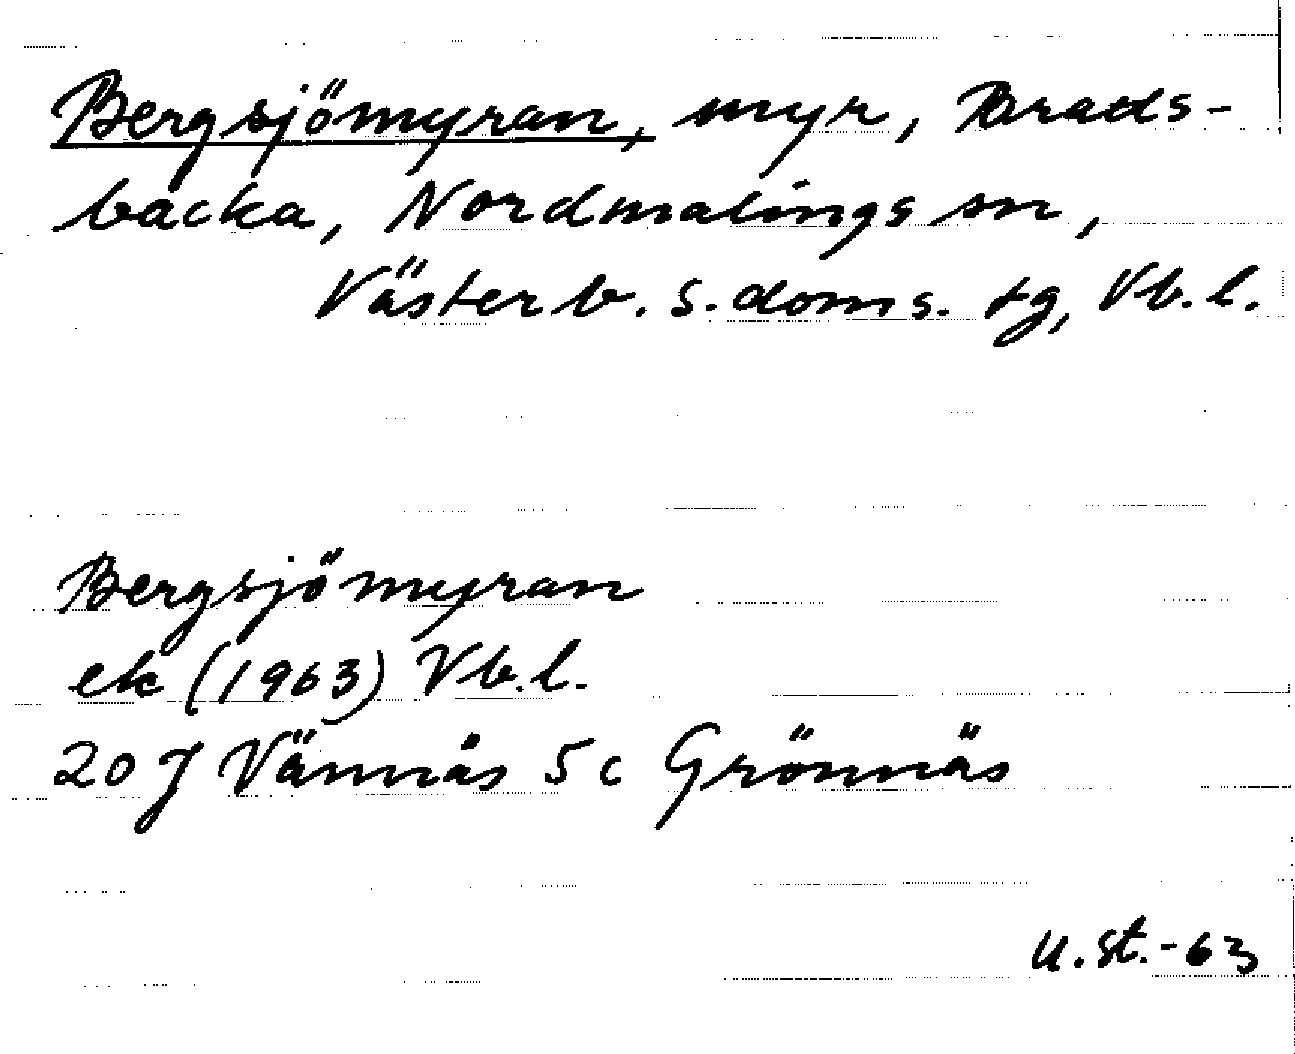 Bergsjömyran, myr, Brads-
backa, Nordmalings sn,
Västerb. s. doms. tg, Vb. l.
Bergsjömyran
ek (1963) Vb. l.
20 J Vännäs 5 c Grönnäs
U. St. -63